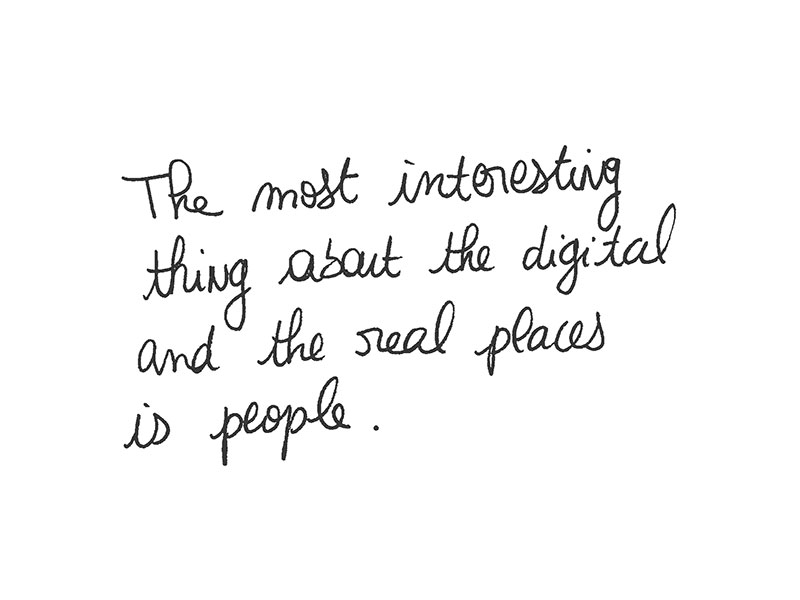 The most interesting
thing about the digital
and the real places
is people.